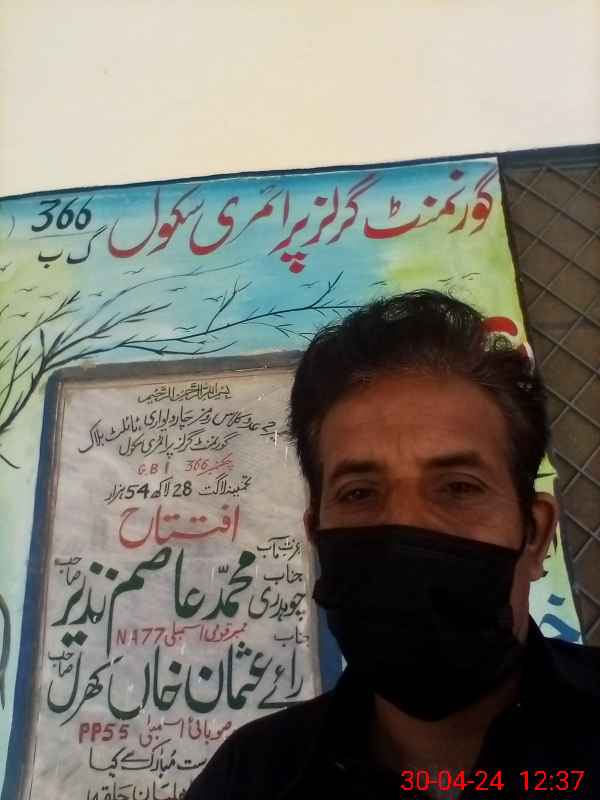 گورنمنٹ گرلز پرائمری سکول 366 گ ب
بسم اللہ الرحمن الرحیم
عدد کلاس رومز چار دیواری، ٹائلٹ بلاک
گورنمنٹ گرلز پرائمری سکول
چکنمبر 366 G.B
تخمینہ لاگت 28 لاکھ 54 ہزار
افتتاح
عزت مآب
جناب چوہدری محمد عاصم نذیر صاحب
ممبر قومی اسمبلی NA77
جناب
رائے عثمان خاں کھرل صاحب
صوبائی اسمبلی PP55
ست مبارک سے کیا
30-04-24 12:37